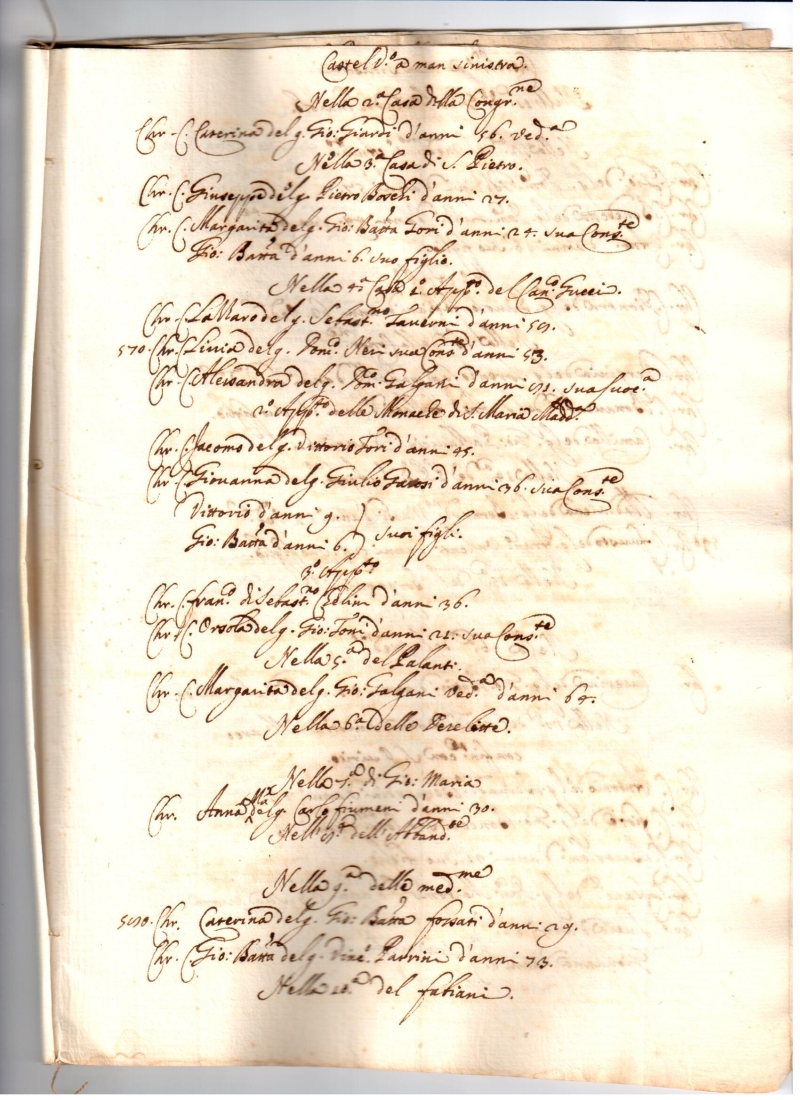 Castel d.º a man sinistra.
Nella 2.ª Casa della Congr.ne
Chr. C. Caterina del q. Gio: Giardi d'anni 56. Ved.ª
Nella 3.ª Casa di S. Pietro.
Chr. C. Giuseppe del q. Pietro Boschi d'anni 27.
Chr. C. Margarita del q. Gio: Batta Gori d'anni 24. sua Cons.te
Gio: Batta d'anni 6. suo figlio.
Nella 4.ª Casa 1.º App.to del Can.co Gucci.
Chr. C. del q. Sebast.no Taverni d'anni 59.
570. Chr. C. Livia del q. Dom.co Neri sua Cons.te d'anni 53.
Chr. C. Alessandra del q. Dom.co Galgani d'anni sua Suoc.ª
2.º App.to delle Monache di S. Maria Madd.ª
Chr. C. Jacomo del q. Vittorio Tori d'anni 45.
Chr. C. Giovanna del q. Giulio d'anni 36. sua Cons.te
Vittorio d'anni 9.
Gio: Batta d'anni 6. suoi figli.
3.º App.to
Chr. C. Fran.co di Sebast.no Cedlini d'anni 36.
Chr. C. Orsola del q. Gio: Tomi d'anni 21. sua Cons.te
Nella 5.ª del Palanti.
Chr. C. Margarita del q. Gio: Galgani Ved.ª d'anni 64.
Nella 6.ª delle
Nella 7.ª di Gio: Maria
Chr. Anna M.ª del q. Carlo fiumeni d'anni 30.
Nell' dell'
Nella 9.ª delle med.me
Chr. Caterina del q. Gio: Batta fossati d'anni 29.
Chr. C. Gio: Batta del q. Parrini d'anni 73.
Nella 10.ª del fabiani.